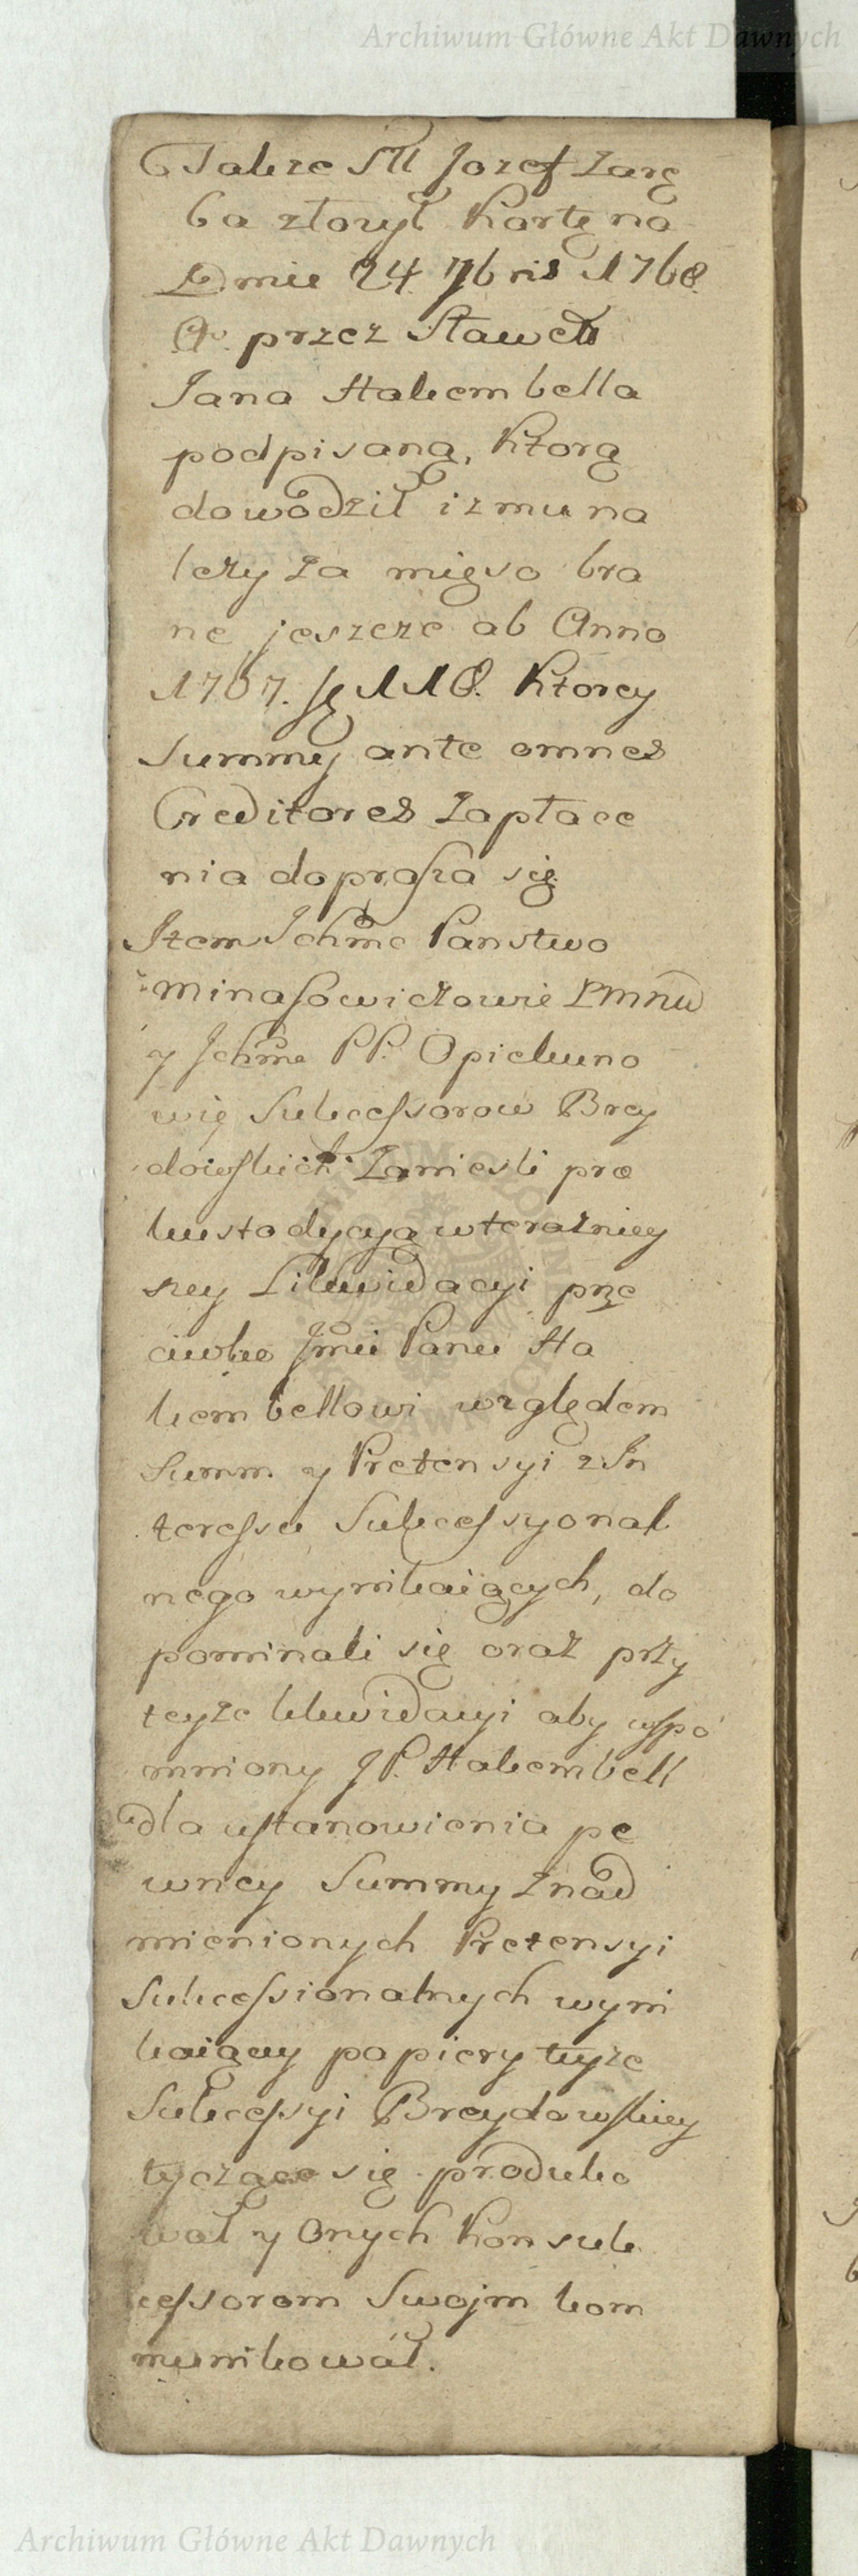 Archiwum Główne Akt Dawnych
Takze Sł Jozef Zarę
ba złozył Kartę na
Dniu 24 7bris 1768.
Ao przez Sławetn
Jana Halkembella
podpisaną, Którą
dowodził iz mu na
lezy za mięso bra
ne jeszcze ab Anno
1767. fl 118. Ktorey
Summy ante omnes
Creditores Zapłace
nia doprasza się
Item Ichmc Panstwo
Minasowiczowie
y Ichme PP. Opiekuno
wie Sukcessorow Brey
dowskich Zaniesli prœ
kustodycyą w teraźniey
szey Likwidacyi prze
ciwko Jmci Panu Ha
kembellowi względem
Summ y Pretensyi z In
teressu Sukcessyonal
nego wynikaiących, do
pominali się oraz przy
teyze likwidacyi aby wspo
mniony JP. Halkembell
dla ustanowienia pe
wney Summy z nad
mienionych Pretensyi
Sukcessionalnych wyni
kaiącey papiery teyze
Sukcessyi Breydowskiey
tyczące się produko
wał y Onych Konsuk
cessorom Swojm kom
munikował.
Archiwum Główne Akt Dawnych